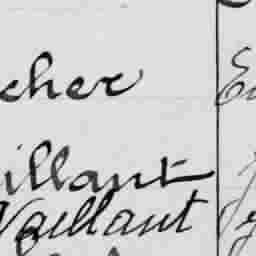 cher
illant
Vaillant